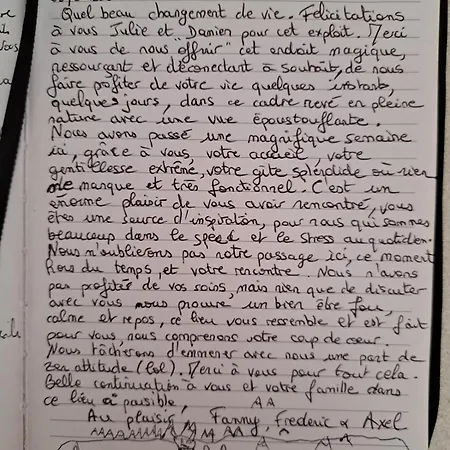 Quel beau changement de vie. Félicitations
à vous Julie et Damien pour cet exploit. Merci
à vous de nous "offrir" cet endroit magique,
ressourçant et déconectant à souhait, de nous
faire profiter de votre vie quelques instant,
quelques jours, dans ce cadre rêvé en pleine
nature avec une vue époustouflante.
Nous avons passé une magnifique semaine
ici, grâce à vous, votre accueil, votre
gentillesse extrême, votre gîte splendide où rien
ne manque et très fonctionnel. C'est un
énorme plaisir de vous avoir rencontré, vous
êtes une source d'inspiration, pour nous qui sommes
beaucoup dans le speed et le stress au quotidien.
Nous n'oublierons pas notre passage ici, ce moment
hors du temps, et votre rencontre. Nous n'avons
pas profité de vos soins, mais rien que de discuter
avec vous nous procure un bien être fou,
calme et repos, ce lieu vous ressemble et est fait
pour vous, nous comprenons votre coup de cœur.
Nous tâcherons d'emmener avec nous une part de
zen attitude (lol). Merci à vous pour tout cela.
Belle continuation à vous et votre famille dans
ce lieu si paisible,
Au plaisir Fanny, Frederic & Axel